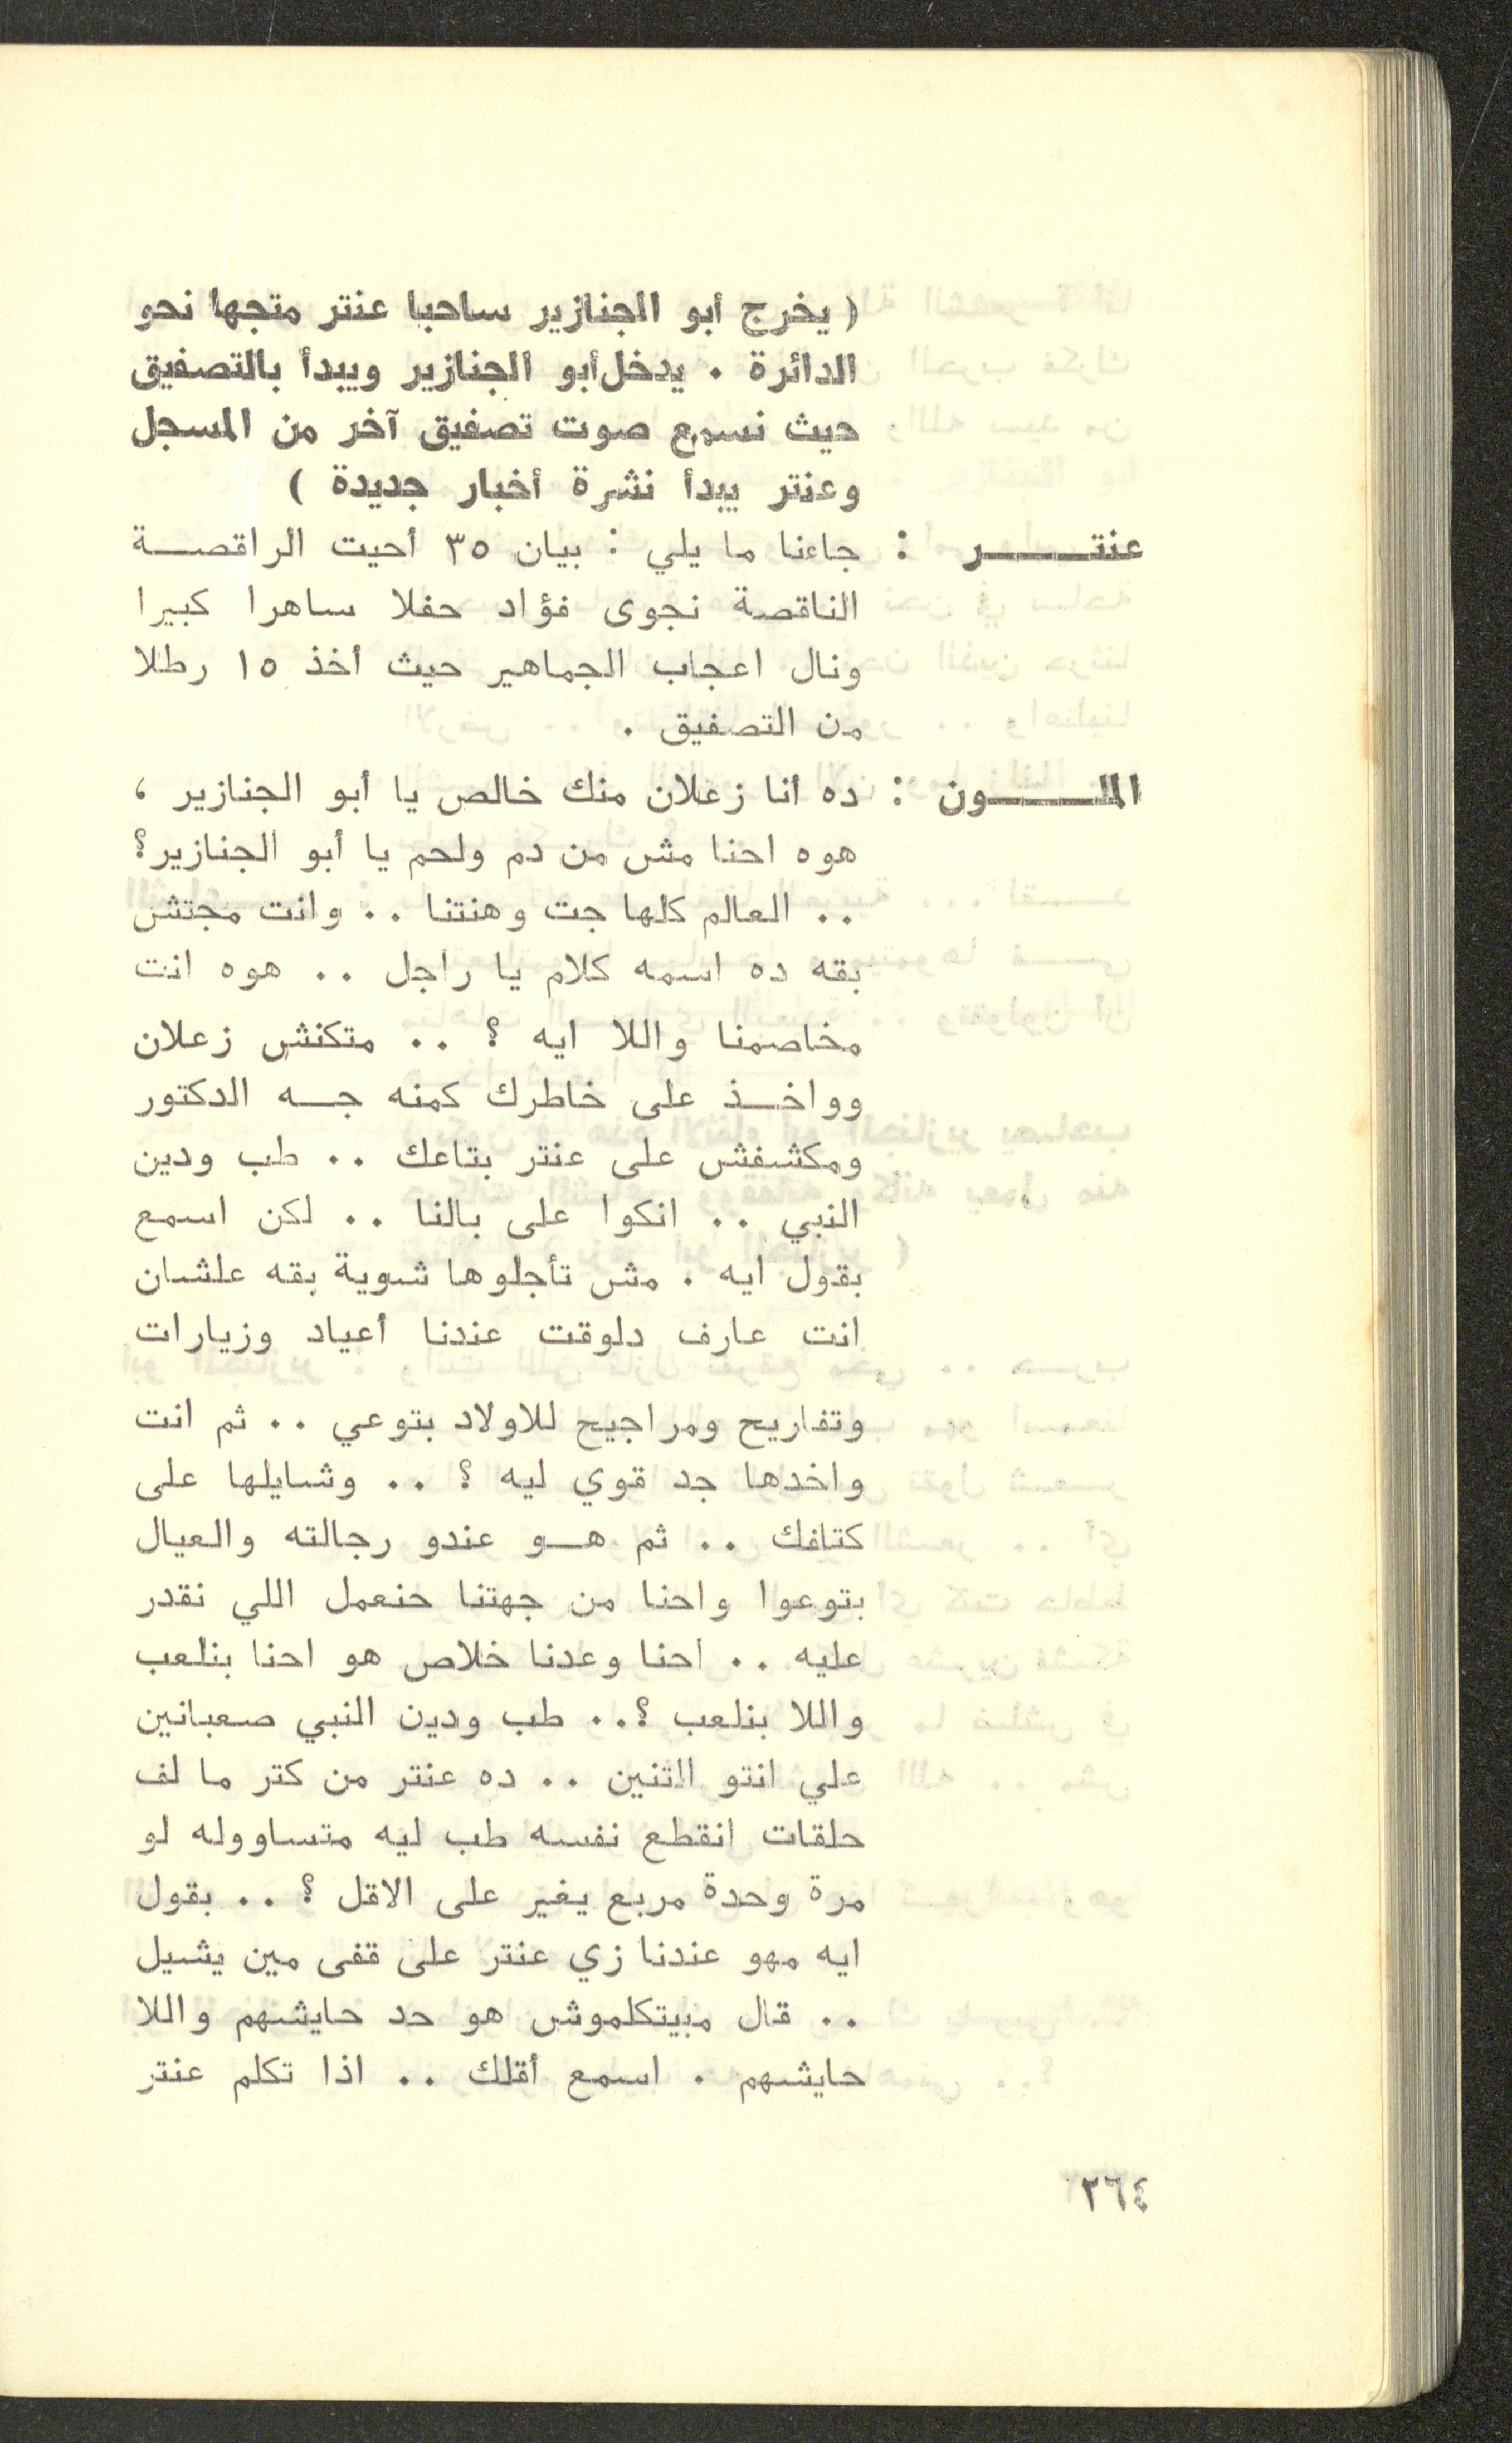 ( يخرج أبو الجنازير ساحبا عنتر متجها نحو
الدائرة . يدخل أبو الجنازير ويبدأ بالتصفيق
حيث نسمع صوت تصفيق آخر من المسجل
وعنتر يبدأ نشرة أخبار جديدة )
عنتـــــــر : جاءنا ما يلي : بيان ٣٥ أحيت الراقصـــة
الناقصة نجوى فؤاد حفلا ساهرا كبيرا
ونال اعجاب الجماهير حيث أخذ ١٥ رطلا
من التصفيق .
الملـــــــون : ده أنا زعلان منك خالص يا أبو الجنازير ،
هوه احنا مش من دم ولحم يا أبو الجنازير؟
.. العالم كلها جت وهنتنا .. وانت مجتش
بقه ده اسمه كلام يا راجل .. هوه انت
مخاصمنا واللا ايه ؟ .. متكنش زعلان
وواخــذ على خاطرك كمنه جــه الدكتور
ومكشفش على عنتر بتاعك .. طب ودين
النبي .. انكوا على بالنا .. لكن اسمع
بقول ايه . مش تأجلوها شوية بقه علشان
انت عارف دلوقت عندنا أعياد وزيارات
وتفاريح ومراجيح للاولاد بتوعي .. ثم انت
واخدها جد قوي ليه ؟ .. وشايلها على
كتافك .. ثم هــو عندو رجالته والعيال
بتوعوا واحنا من جهتنا حنعمل اللي نقدر
عليه .. احنا وعدنا خلاص هو احنا بنلعب
واللا بنلعب ؟.. طب ودين النبي صعبانين
علي انتو الاتنين .. ده عنتر من كتر ما لف
حلقات انقطع نفسه طب ليه متساووله لو
مرة وحدة مربع يغير على الاقل ؟ .. بقول
ايه مهو عندنا زي عنتر على قفى مين يشيل
.. قال مبيتكلموش هو حد حايشهم واللا
حايشهم . اسمع أقلك .. اذا تكلم عنتر
٢٦٤